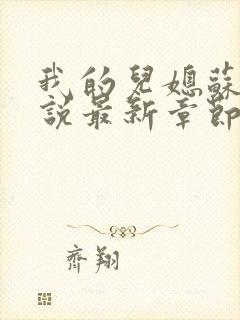 我的兒媳蘇
說最新章節
齊翔